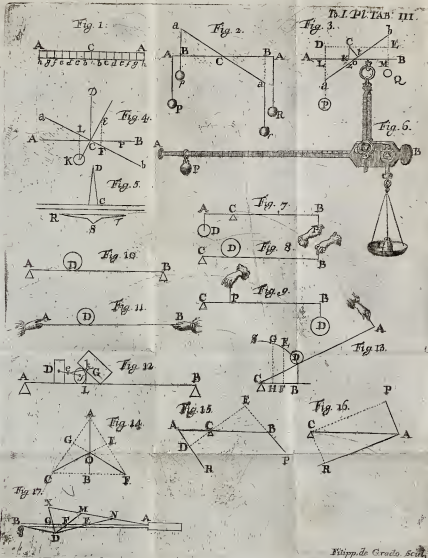 B. I. Pl. TAB. III.
Fig. 1.
A C A
h g f e d c b b c d e f g h
Fig. 2.
a
A B C B A
P P a R r
Fig. 3.
D C b E
A L K M B
a Q
P
Fig. 4.
D
a E
L
A C F P B
K b
Fig. 5.
D
C
R S T
Fig. 6.
A B
P
Fig. 7.
A C B
D P
Fig. 8.
C D B
P
Fig. 9.
C P B
D
Fig. 10.
A D B
Fig. 11.
A D B
Fig. 12.
D G
A L B
Fig. 13.
S G E
D A
C H F B
Fig. 14.
A
G E
O
C B F
Fig. 15.
E
A C B
D
R P
Fig. 16.
P
C A
R
Fig. 17.
X M
N
B G F E A
D
Filipp. de Grado. Scul.